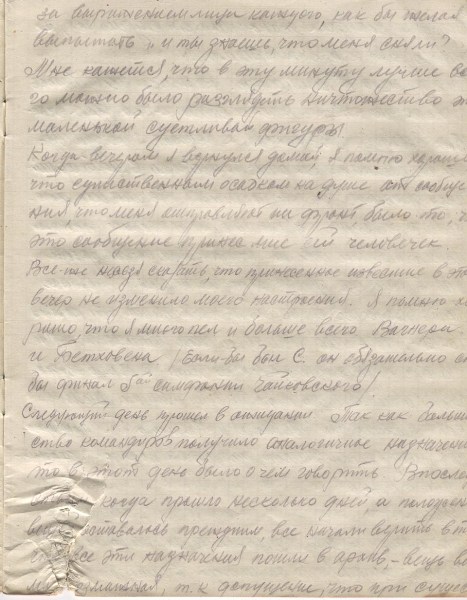 за выражением лица каждого, как бы желая
выпытать „и ты знаешь, что меня сняли?
Мне кажется, что в эту минуту лучше все
го можно было разглядеть ничтожество э
маленькой суетливой фигуры
Когда вечером я вернулся домой, я помню хорошо
что существенным осадком на душе от сообще
ния, что меня отправляют на фронт, было то, ч
это сообщение принес мне этот человечек
Все-же надо сказать, что принесенное известие в это
вечер не изменило моего настроения. Я помню хо
рошо, что я много пел и больше всего Вагнера
и Бетховена (Если-бы был С. он обязательно
бы финал 5ой симфонии Чайковского)
Следующий день прошел в ожидании Так как больш
ство командиров получило аналогичное назначени
то в этот день было о чем говорить Впосле
когда прошло несколько дней а полож
оставалось прежним, все начали верить в т
все эти назначения пошли в архив, - вещь во
т.к допущение, что при сущес